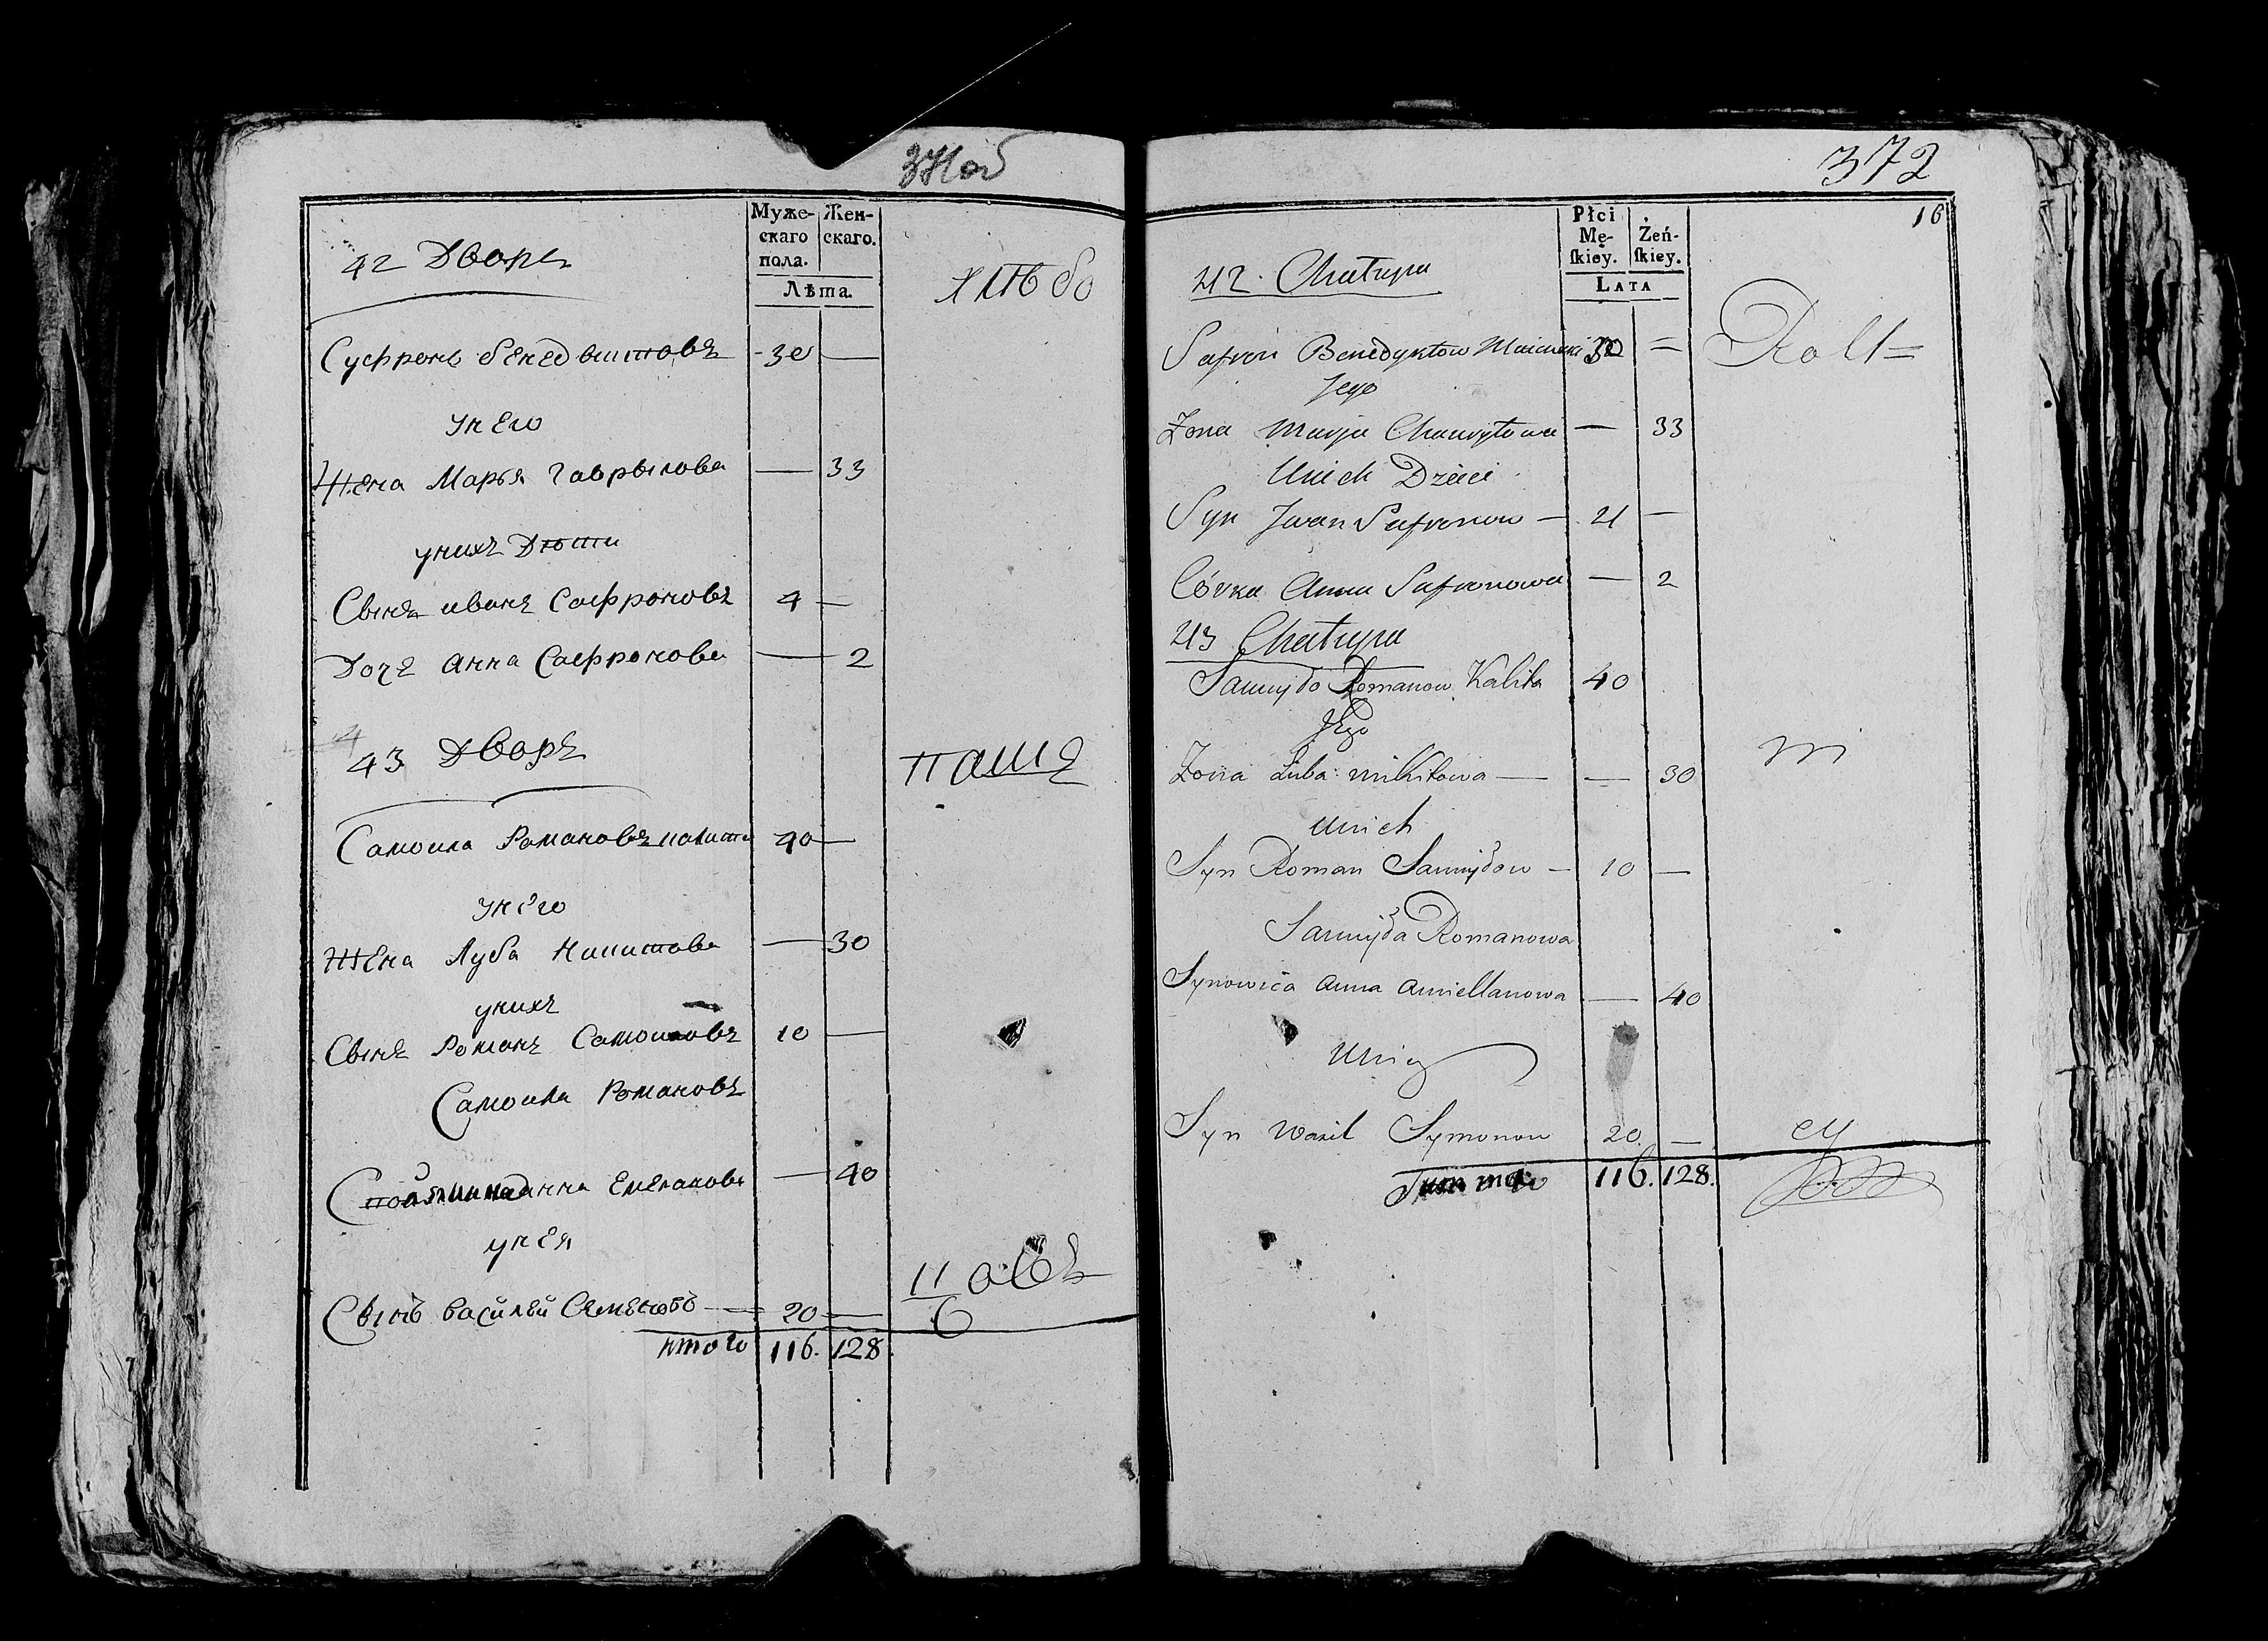 372
16
Муже-
скаго
пола.
Жен-
скаго.
Лѣта.
42 Дворъ
Суфронъ бенедвитовъ 30 —
у него
Жена Марья Гаврылова — 33
у нихъ Дѣти
Сынъ иванъ Сафроновъ 4 —
Дочъ анна Сафронова — 2
43 Дворъ
Самоила Романовъ 40 —
у него
Жена Луба Никитова — 30
у нихъ
Сынъ Романъ Самоиловъ 10 —
Самоила Романовъ
анна Емелянова — 40
у нея
Сынъ василей Семеновъ — 20 —
итого 116. 128.
Płci
Mę-
ſkiey.
Żeń-
ſkiey.
LATA
42. Chałupa
Safron Benedyktow 30 =
Jego
Żona Marja — 33
Unich Dzieci
Syn Jwan Safronow — 4 —
Córka Anna Safronowa — 2
43 Chałupa
Samuyło Romanow Kalita 40
Jego
Żona Luba Mikitowa — — 30
Unich
Syn Roman Samuyłow — 10 —
Samuyła Romanowa
Synowica Anna — 40
Syn Wasil Symonow 20. —
Summa 116. 128.